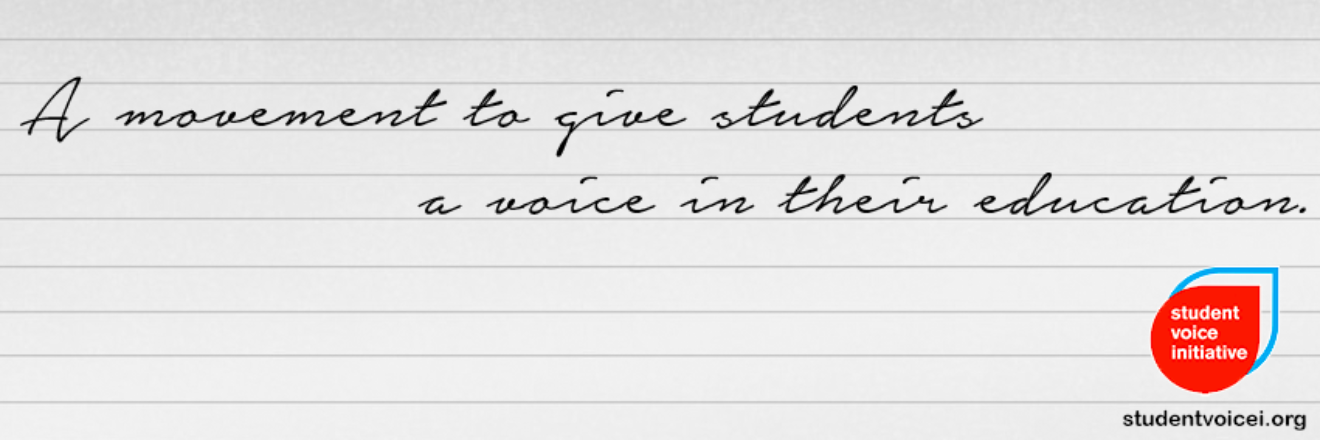 A movement to give students
a voice in their education.
student
voice
initiative
studentvoicei.org